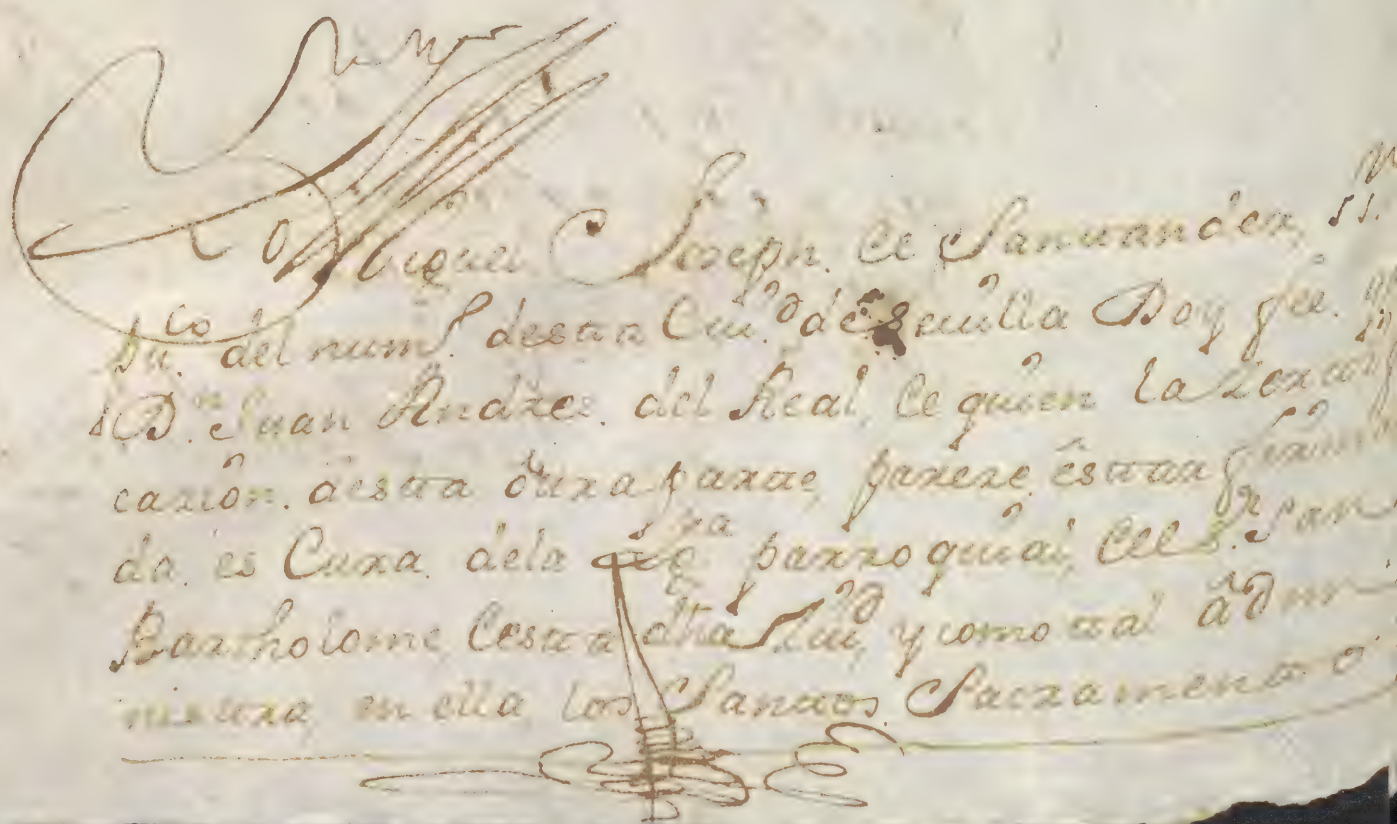 Yo Miguel Joseph de Santander ss.
pu.co del num.o desta Ciu.d de Sevilla Doy fee
D.n Juan Andres del Real, de quien la zertifi
cazion desta otra parte pareze estar firma
da, es Cura dela parroquial, del S.r San
Bartholome, desta dha Ciu.d y como tal Admi
nistra en ella los Santos Sacramento